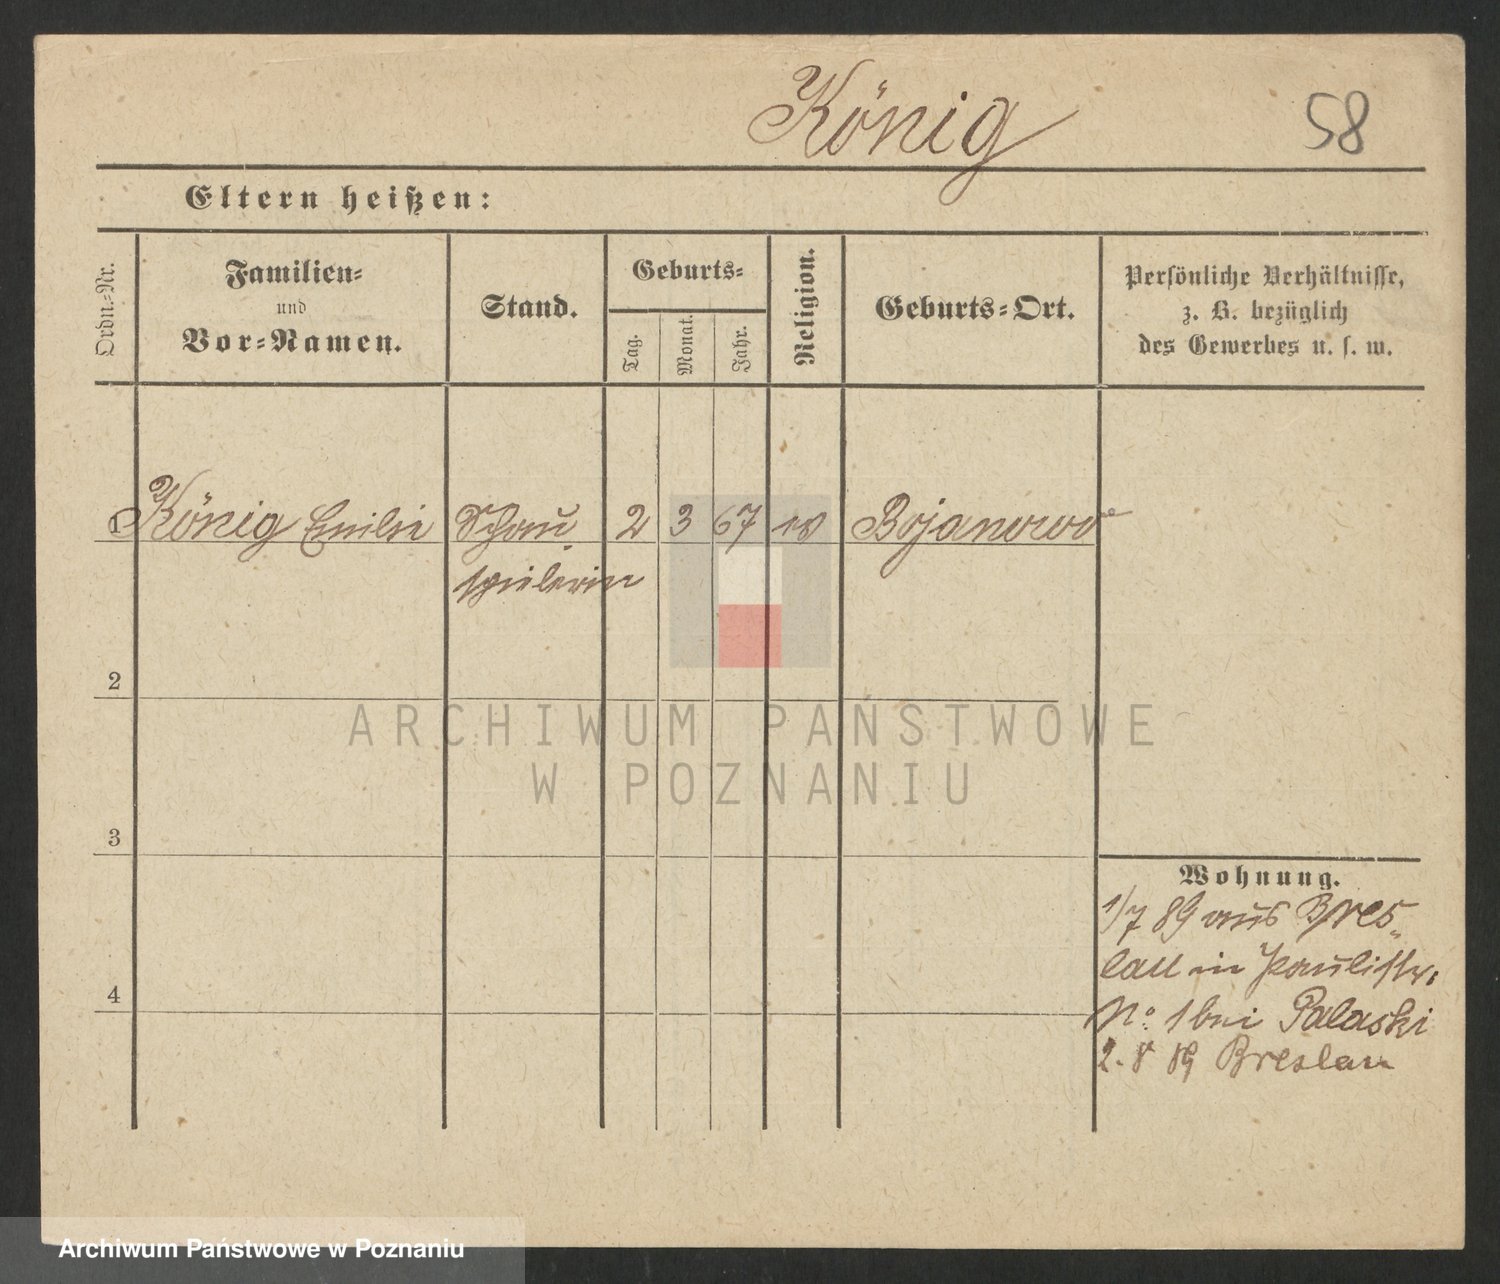 König
58
Eltern heißen:
Ordn.-Nr.
Familien-
und
Vor-Namen.
Stand.
Geburts-
Tag.
Monat.
Jahr.
Religion.
Geburts-Ort.
Persönliche Verhältnisse,
z. B. bezüglich
des Gewerbes u. s. w.
1 König Emilie Schau 2 3 67 Bojanowo
spielerin
2
3
4
Wohnung.
1/7 89 aus Bres-
lau in Paulistr.
No. 1 bei Palaski
2. 8 89 Breslau
ARCHIWUM PAŃSTWOWE
W POZNANIU
Archiwum Państwowe w Poznaniu